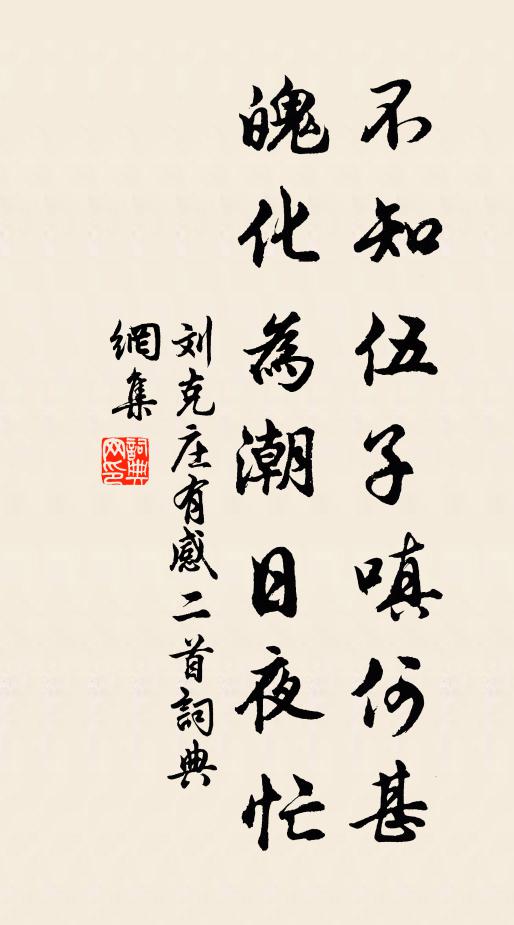 不知伍子嗔何甚
魄化為潮日夜忙
刘克庄有感二首詞典
網集
詞典
网印